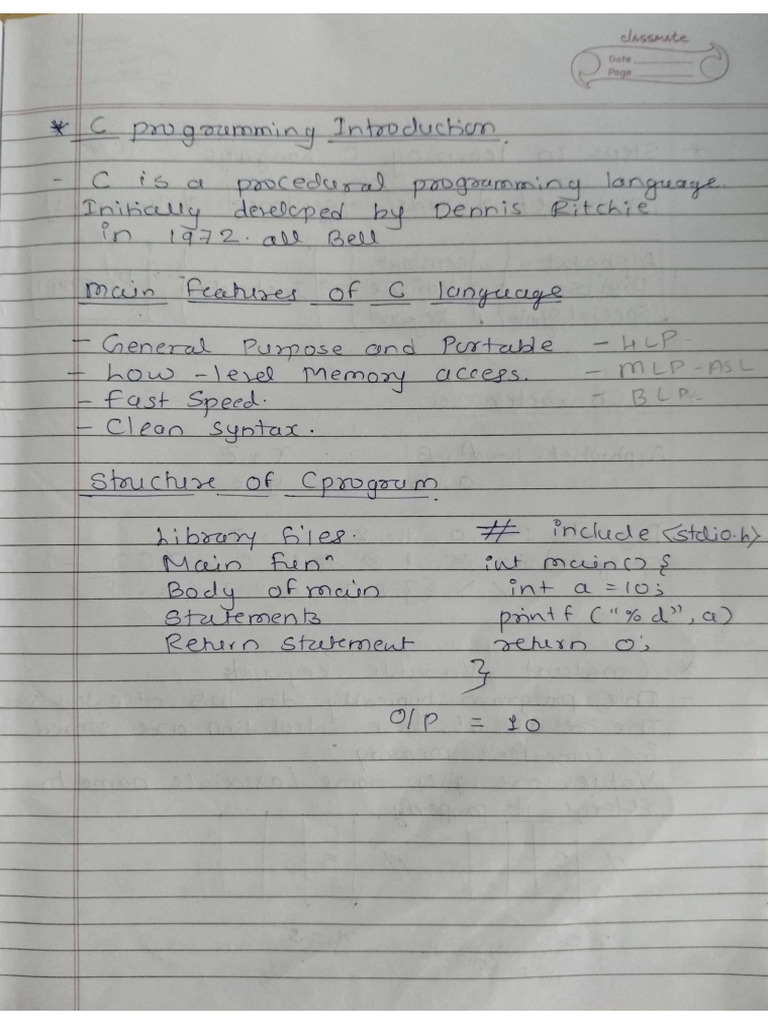 classmate
Date
Page
* C programming Introduction.
- C is a procedural programming language.
Initially developed by Dennis Ritchie
in 1972. all Bell
Main features of C language
- General Purpose and Portable - HLP -
- Low-level Memory access. - MLP-ASL
- Fast Speed. - BLP-
- Clean Syntax.
Structure of C program.
Library files. # include <stdio.h>
Main funⁿ int main() {
Body of main int a = 10;
Statements printf ("%d", a)
Return Statement return 0;
}
O/P = 10